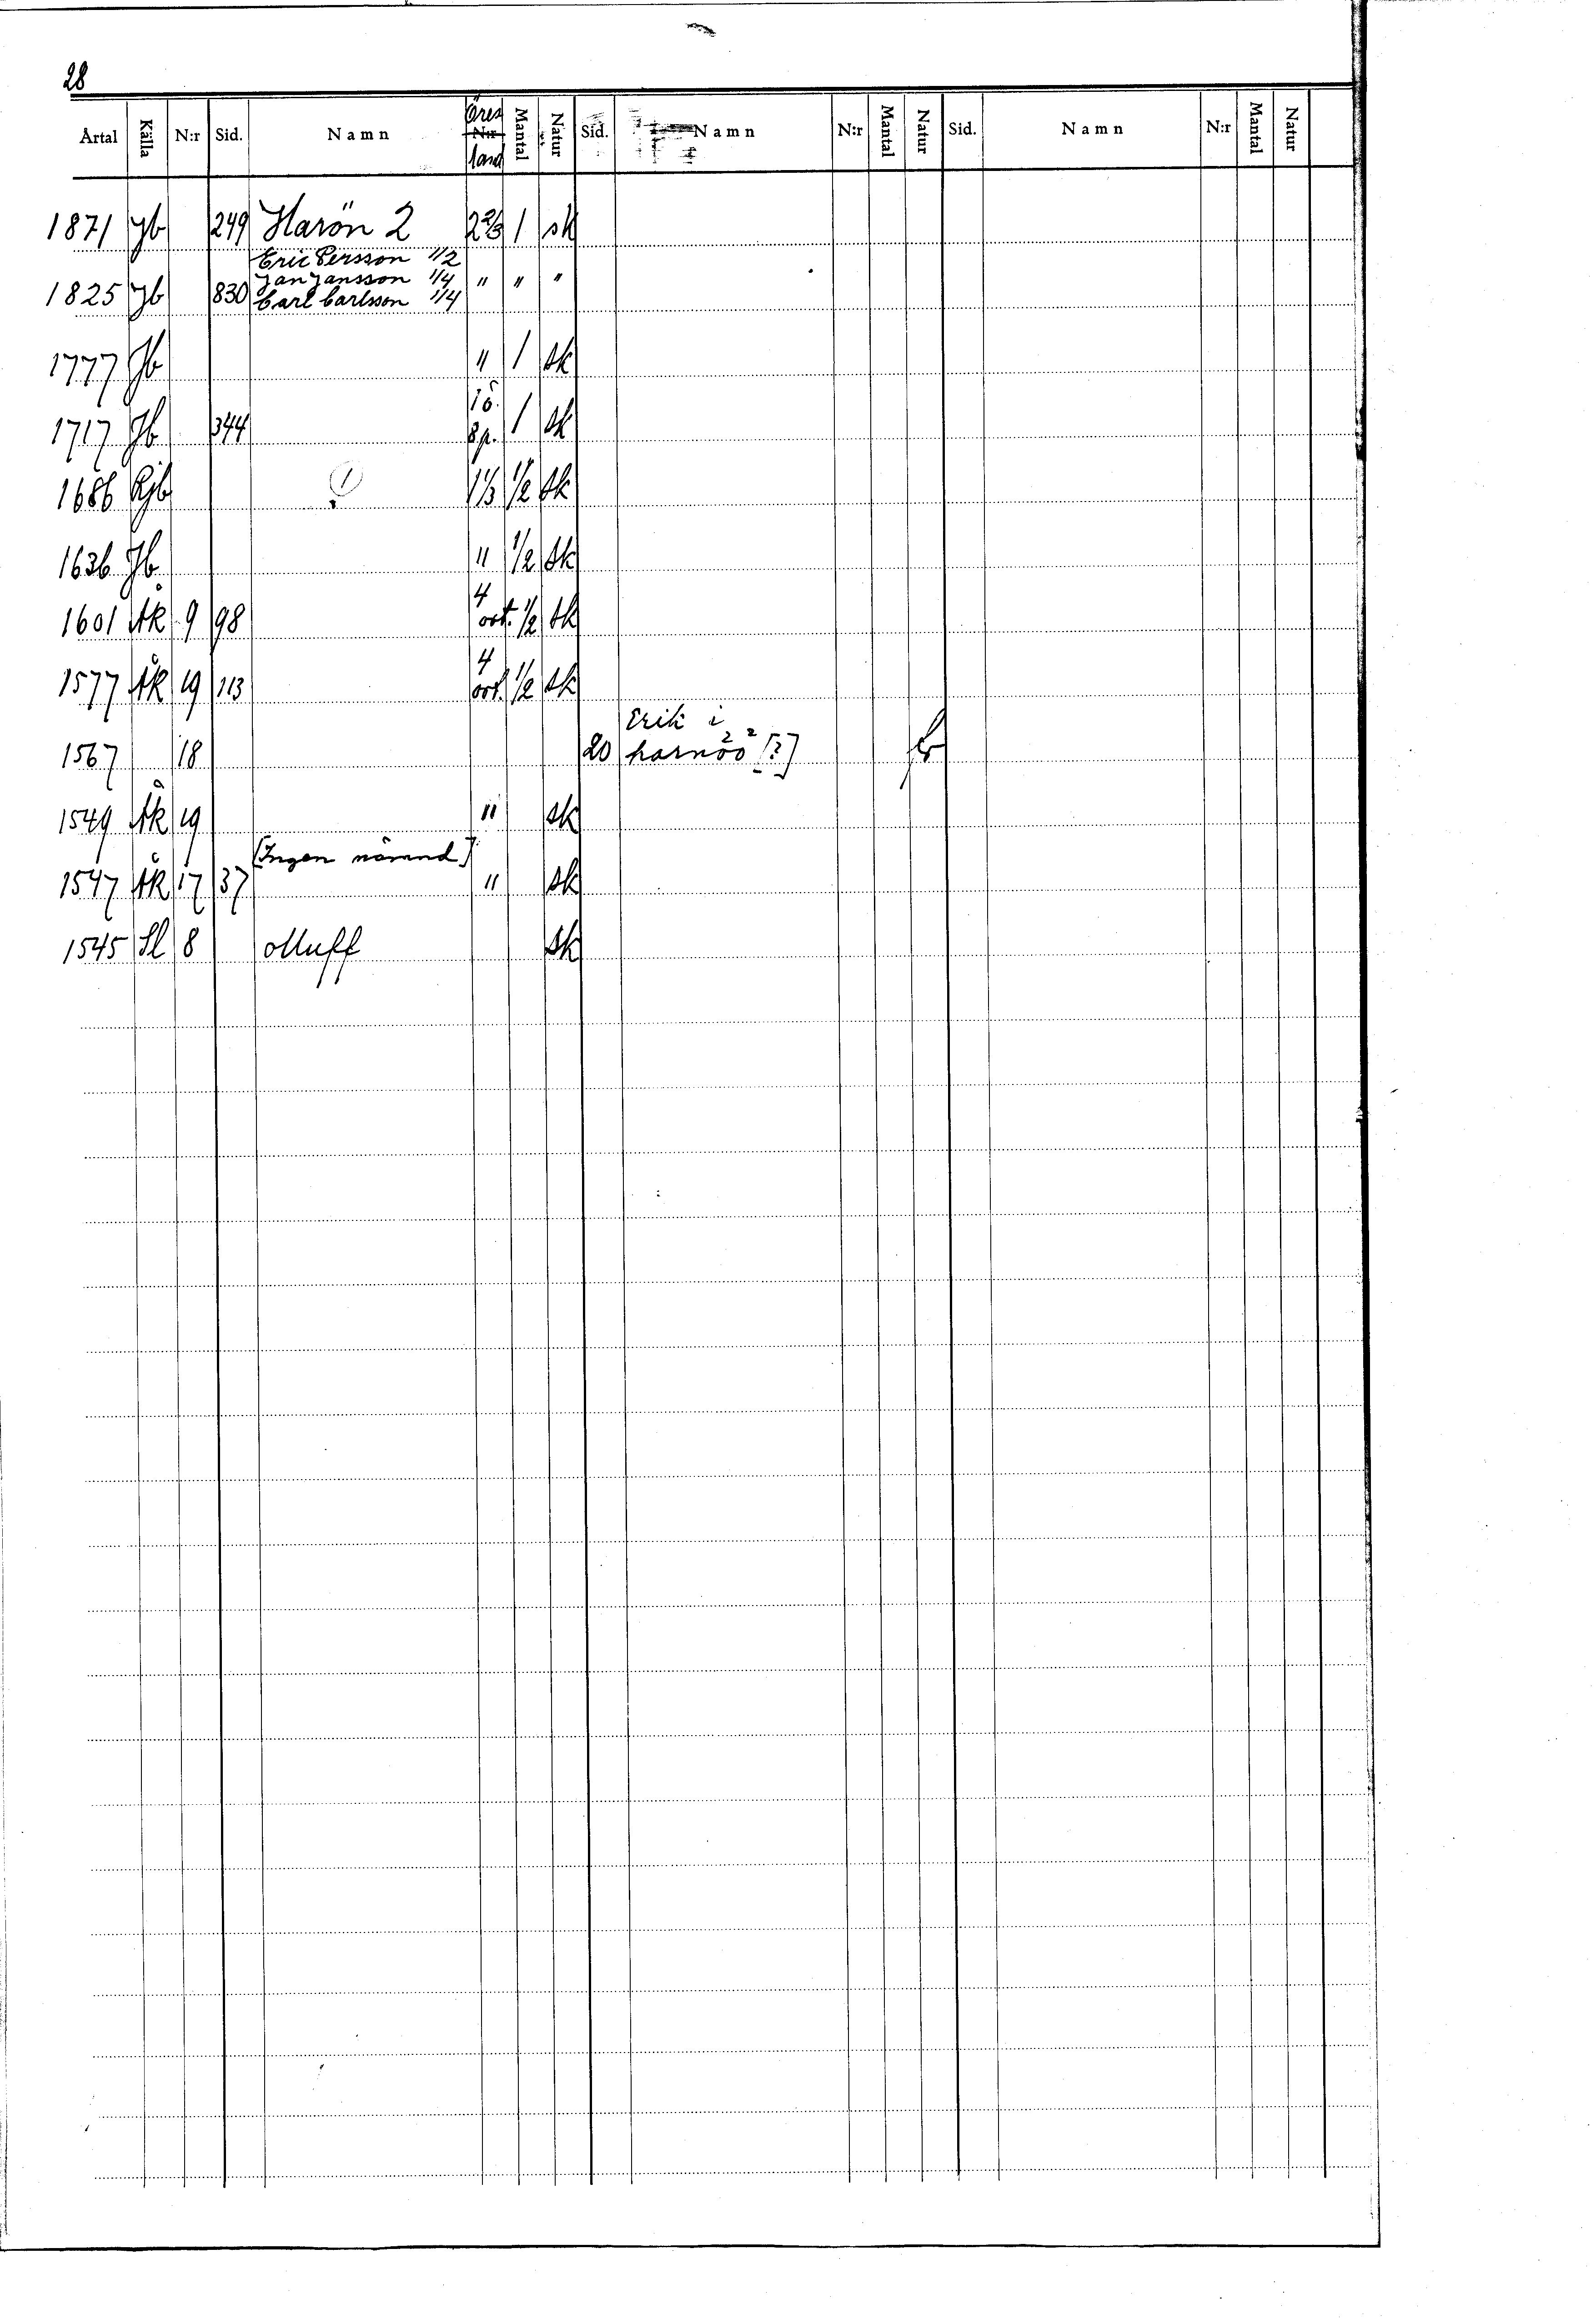 28
Årtal Källa N:r Sid. Namn Öres N:r land Mantal Natur Sid. Namn N:r Mantal Natur Sid. Namn N:r Mantal Natur
1871 Jb 249 Harön 2 2 2/3 1 sk
Eric Persson 1/2
1825 Jb 830 Jan Jansson 1/4 " " "
Carl Carlsson 1/4
1777 Jb " 1 sk
1717 Jb 344 1 ö. 8 p. 1 sk
1686 Rjb 1 1 1/3 1/2 sk
1636 Jb " 1/2 sk
1601 ÅK 9 98 4 ort. 1/2 sk
1577 ÅK 19 113 4 ort. 1/2 sk
1567 18 20 Erik i
harnöö [?]
1549 ÅK 19 " sk
[Ingen nämnd]
1547 ÅK 17 37 " sk
1545 Sl 8 olluff sk